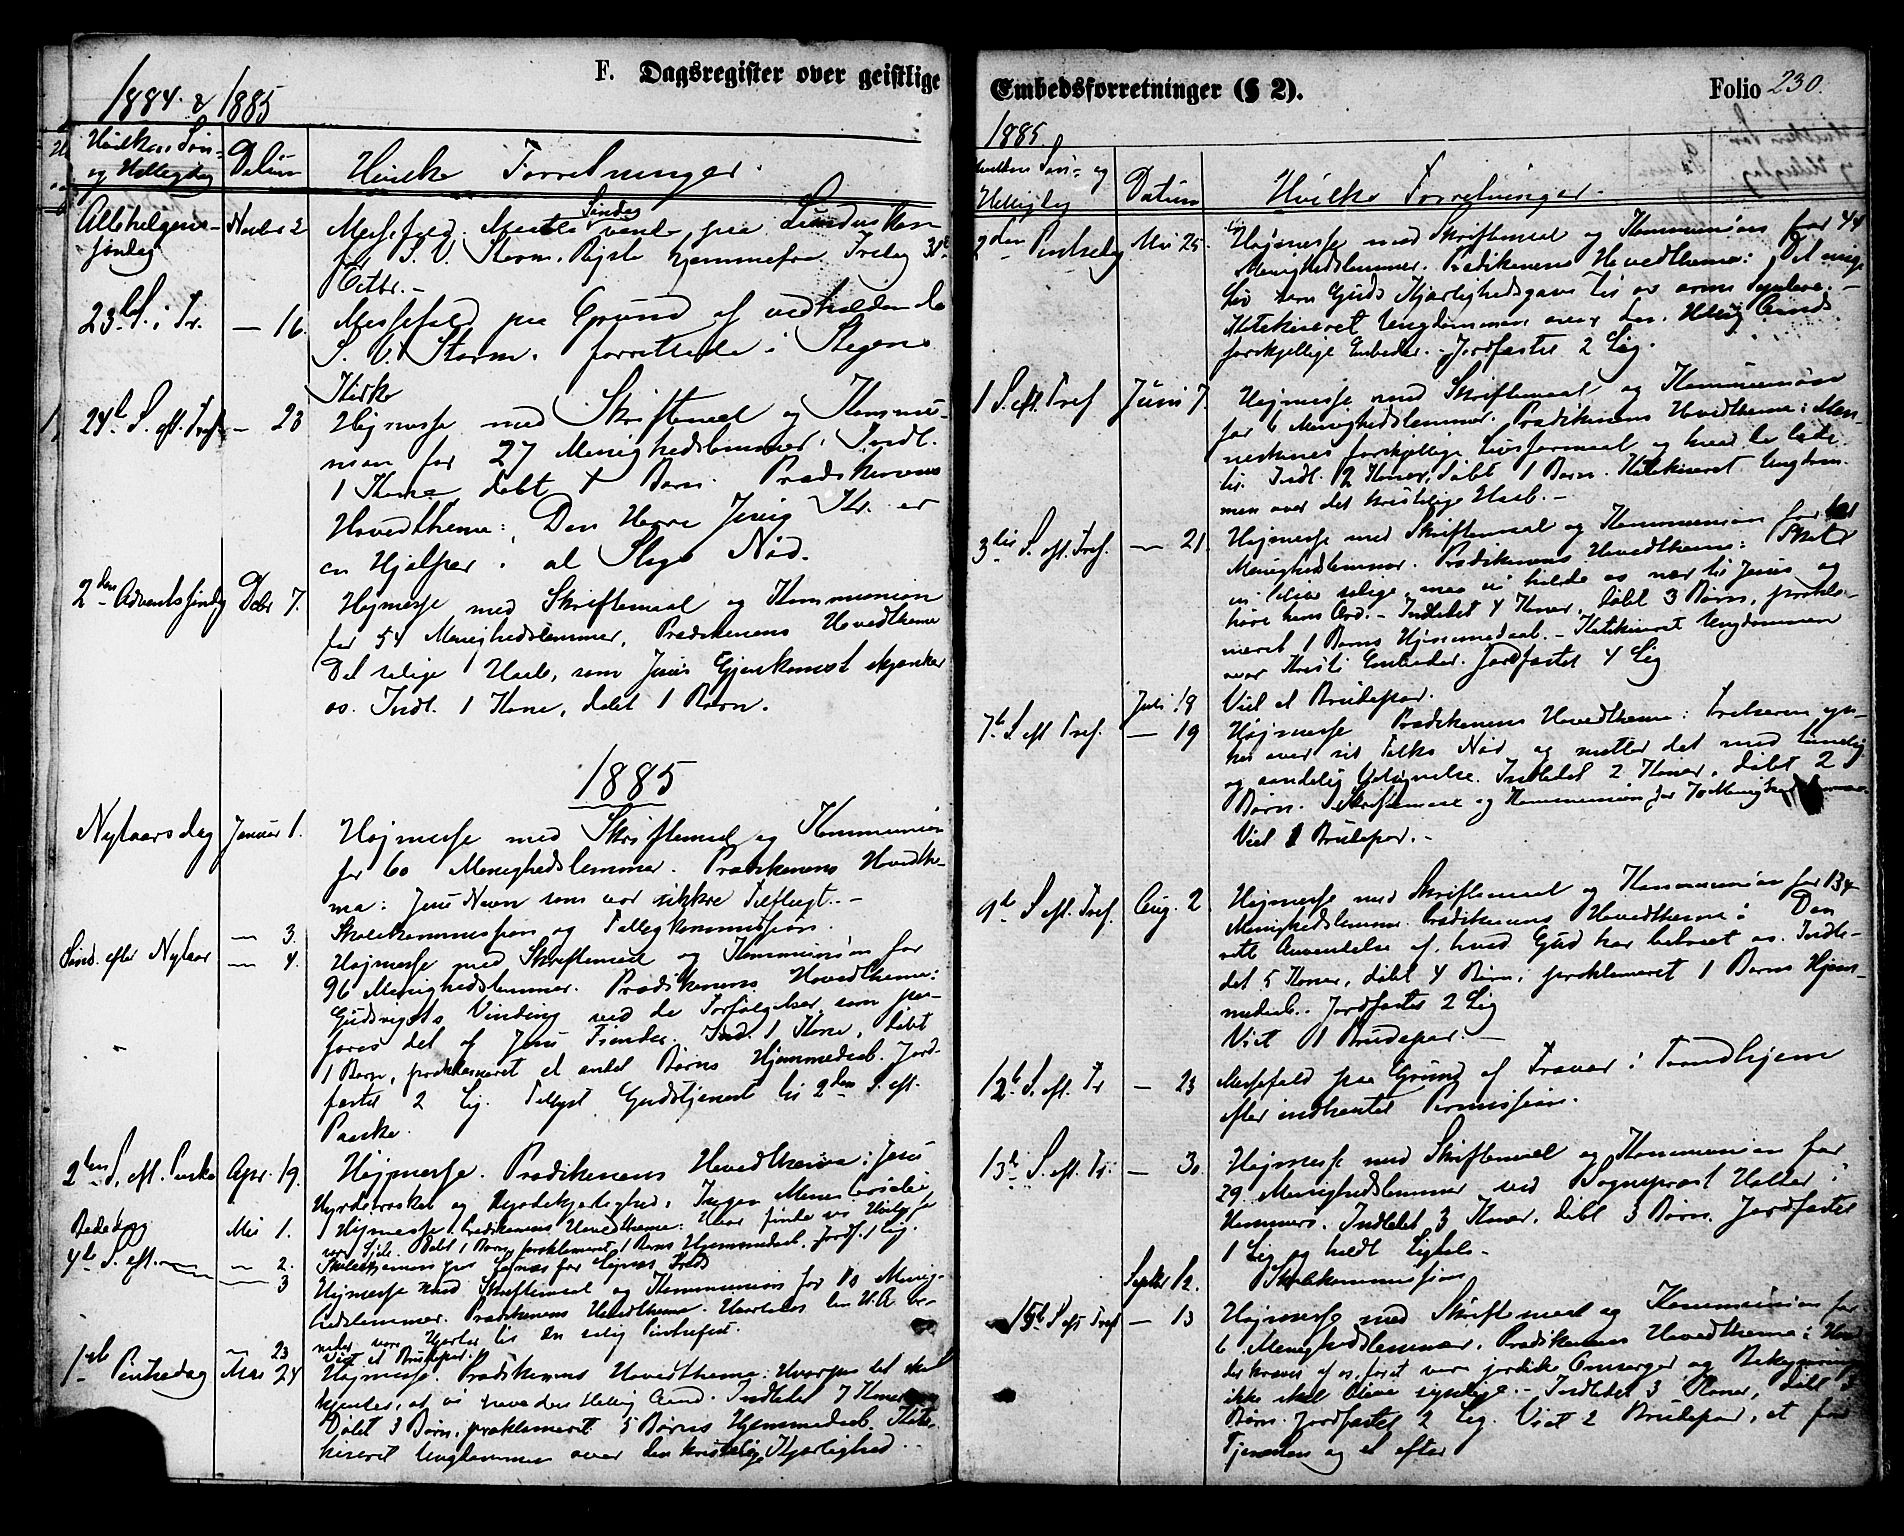 F. Dagsregister over geistlige
1884 & 1885
Hvilken Søn-
og Helligdag
Datum
Hvilke Forretninger.
Allehelgens-
søndag
Novbr 2
Messefald.
for S. V. Storm. Rejste hjemmefra Fredag 31te
Octbr. -
23de S. i Tr.
— 16.
Messefald paa Grund af vedholdende
S. V. Storm. forrettede i Stegens
Kirke
24de S. eft. Tref.
— 23
Højmesse med Skriftemaal og Kommu-
nion for 27 Menighedslemmer. Indl.
1 Kone døbt 4 Børn. Prædikenens
Hovedthema: Den Herre Jesus Kr. er
en Hjælper i al Slags Nød.
2den Adventssøndag
Debr 7.
Højmesse med Skriftemaal og Kommunion
for 54 Menighedslemmer, Prædikenens Hovedthema
Det salige Haab, som Jesus Gjenkomst skjænker
os. Indl. 1 Kone, døbt 1 Barn.
1885
Nytaarsdag
Januar 1.
Højmesse med Skriftemaal og Kommunion
for 60 Menighedslemmer. Prædikenens Hovedthe-
ma: Jesu Navn som vor sikkre Tilflugt. -
— 3.
Skolekommission og Tilsynskommission.
Sønd. efter Nytaar
— 4.
Højmesse med Skriftemaal og Kommunion for
96 Menighedslemmer. Prædikenens Hovedthema:
Gudsrigets Vinding ved de Forfølgelser, som paa-
føres det af Jesu Fiender. Ind. 1 Kone, døbt
1 Barn, proklameret et andet Barns Hjemmedaab. Jord-
fæstet 2 Lig. Tillyst Gudstjenest til 2den S. eft.
Paaske.
2den S. eft. Paaske
Apr. 19.
Højmesse. Prædikenens Hovedthema: Jesu
Hyrdetroskab og
Bededag
Mai 1.
Højmesse. Prædikenens Hovedthema: Hvor finde vi Hvile for
vor Sjæl. Døbt 1 Barn, proklameret 1 Barns Hjemmedaab, Jordf. 1 Lig.
4de S. eft.
— 2.
— 3
Højmesse med Skriftemaal og Kommunion for Menig-
hedslemmer. Prædikenens Hovedthema. Hvorledes den H. A. be-
reder vore Hjerter til en salig Pintsefest.
— 23
Viet et Brudepar.
1ste Pintsedag
Mai 24
Højmesse. Prædikenens Hovedthema: Hvorpaa det skal
kjendes, at vi have den Hellig Aand. Indledet 7 Koner
Døbt 3 Børn, proklameret 5 Børns Hjemmedaab. Kate-
kiseret Ungdommen over den kristelige Kjærlighed.
Embedsforretninger (§ 2).
Folio 230.
1885.
Hvilken Søn- og
Helligdag
Datum
Hvilke Forretninger.
2den Pintsedag
Mai 25.
Højmesse med Skriftemaal og Kommunion for 44
Menighedslemmer. Prædikenens Hovedthema: Det evige
Liv som Guds Kjærlighedsgave til os arme Syndere. -
Katekiseret Ungdommen over den Hellig Aands
forskjellige Embeder. - Jordfæstet 2 Lig.
1 S. eft. Tref
Juni 7.
Højmesse med Skriftemaal og Kommunion
for 6 Menighedslemmer. Prædikenens Hovedthema: Men-
neskenes forskjellige Livsformaal og hvad de lede
til. Indl. 2 Koner, døbt 1 Barn. Katekiseret Ungdom-
men over det kristelige Haab. -
3die S. eft. Tref.
— 21.
Højmesse med Skriftemaal og Kommunion for
Menighedslemmer. Prædikenens Hovedthema: Skal
vi blive salige, maa vi holde os nær til Jesus og
høre hans Ord. - Indledet 4 Koner, døbt 3 Børn, prokla-
meret 1 Barns Hjemmedaab. - Katekiseret Ungdommen
over Kristi Embeder. Jordfæstet 4 Lig
Juli 18
Viet et Brudepar.
7de S. eft Tref.
— 19
Højmesse Prædikenens Hovedthema: Frelseren yn-
kes over sit Folks Nød og mætter det med timelig
og aandelig Velsignelse. Indledet 2 Koner, døbt 2
Børn. Skriftemaal og Kommunion for 70
Viet 1 Brudepar. -
9de S. eft. Tref.
Aug. 2
Højmesse med Skriftemaal og Kommunion for 134
Menighedslemmer. Prædikenens Hovedthema: Den
rette Anvendelse af, hvad Gud har betroet os. Indle-
det 5 Koner, døbt 4 Børn, proklameret 1 Barns Hjem-
medaab. Jordfæstet 2 Lig
Viet 1 Brudepar. -
12te S. eft. Tr
— 23
Messefald paa Grund af Fravær i Trondhjem
efter indhentet Permission.
13de S. eft. Tr.
— 30
Højmesse med Skriftemaal og Kommunion for
29 Menighedslemmer ved Sogneprest Halter i
Hammerø. Indledet 3 Koner, døbt 3 Børn. Jordfæstet
1 Lig og holdt Ligtale -
Septbr 12.
Skolekommission
15de S. eft Tref
— 13
Højmesse med Skriftemaal og Kommunion for
6 Menighedslemmer. Prædikenens Hovedthema: Hvad
der kræves af os, foret vore jordiske Omsorger og Bekymringer
ikke skal blive syndige. - Indledet 3 Koner, døbt 3
Børn. Jordfæstet 2 Lig. Viet 2 Brudepar, et før
Tjenesten og et efter